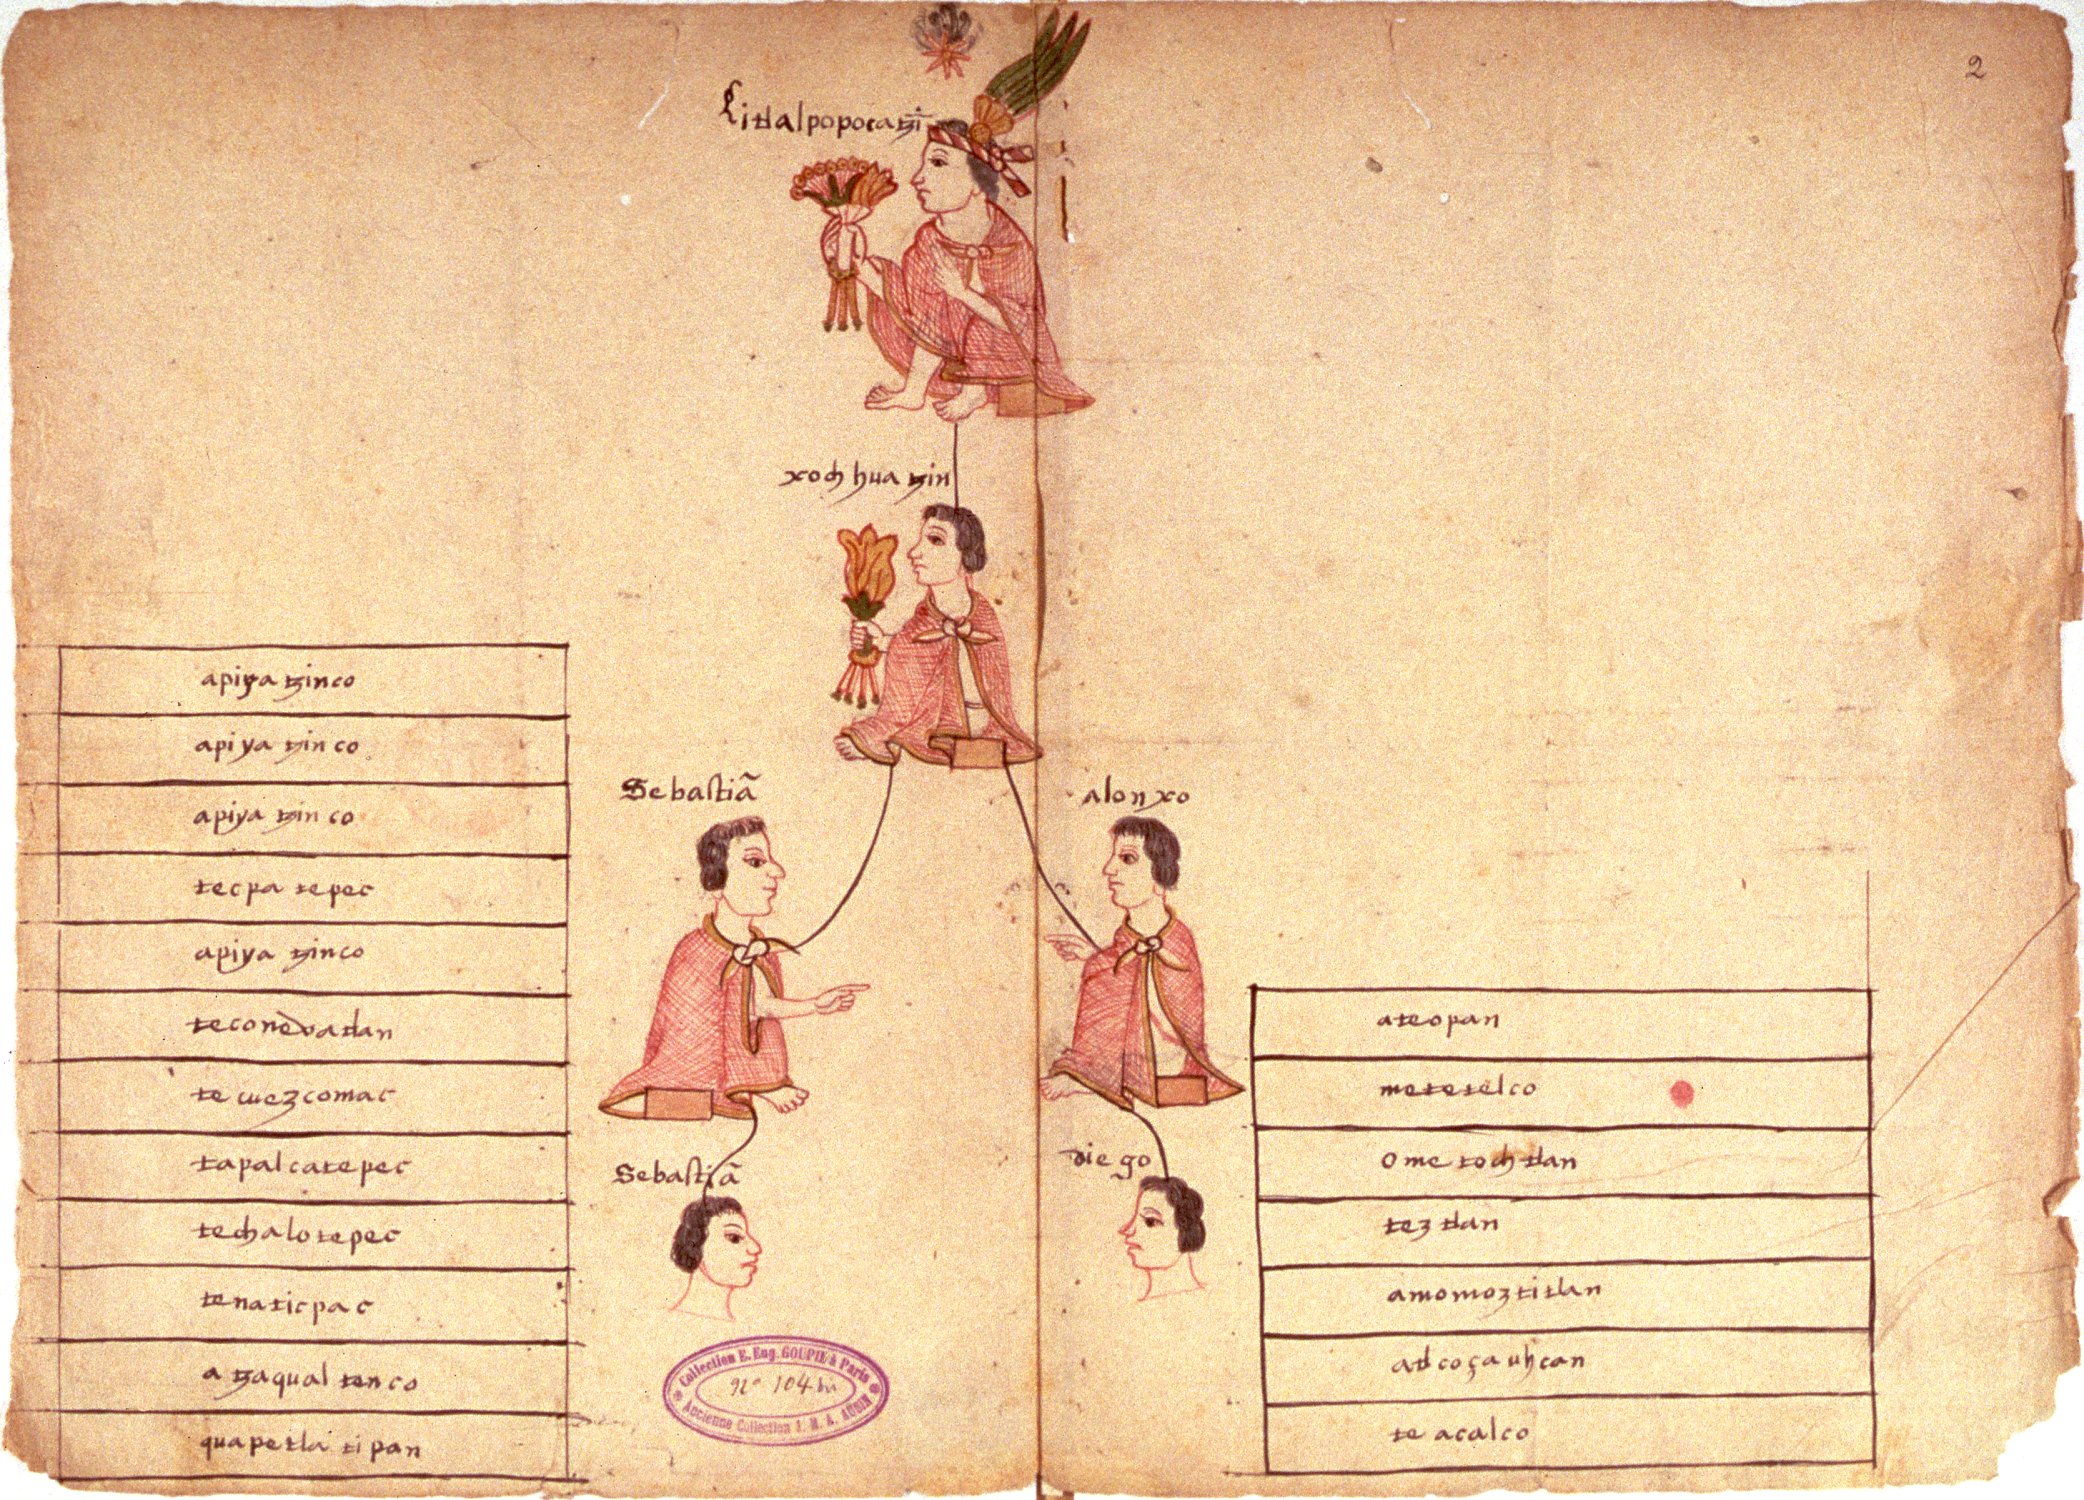 2
Citlalpopocatzi̅
xochhuatzin
Sebastiã
alonxo
Sebastiã
diego
apiya tzinco
apiya tzinco
apiya tzinco
tecpa tepec
apiya tzinco
teconevatlan
te cuezcomac
tapalcatepec
techalotepec
tenaticpac
a tzaqual tenco
quapetla tipan
ateopan
metetelco
ome tochtlan
teztlan
amomoztitlan
atlcoçauhcan
te acalco
Collection E. Eug. GOUPIL à Paris
Ancienne Collection J. M. A. AUBIN